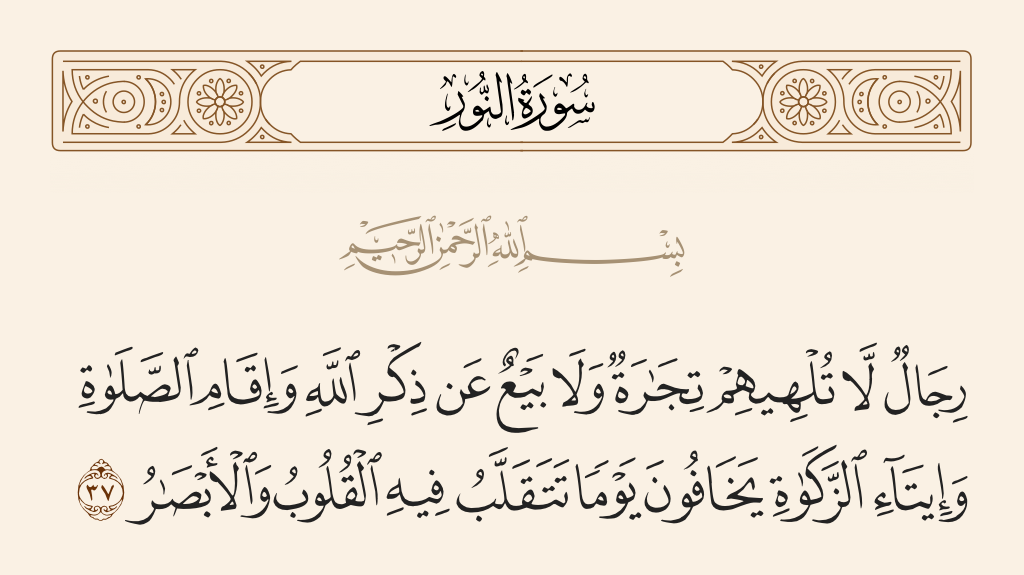 سُورَةُ النُّورِ
بِسْمِ ٱللَّهِ ٱلرَّحْمَٰنِ ٱلرَّحِيمِ
رِجَالٌ لَّا تُلْهِيهِمْ تِجَٰرَةٌ وَلَا بَيْعٌ عَن ذِكْرِ ٱللَّهِ وَإِقَامِ ٱلصَّلَوٰةِ
وَإِيتَآءِ ٱلزَّكَوٰةِ يَخَافُونَ يَوْمًا تَتَقَلَّبُ فِيهِ ٱلْقُلُوبُ وَٱلْأَبْصَٰرُ ٣٧